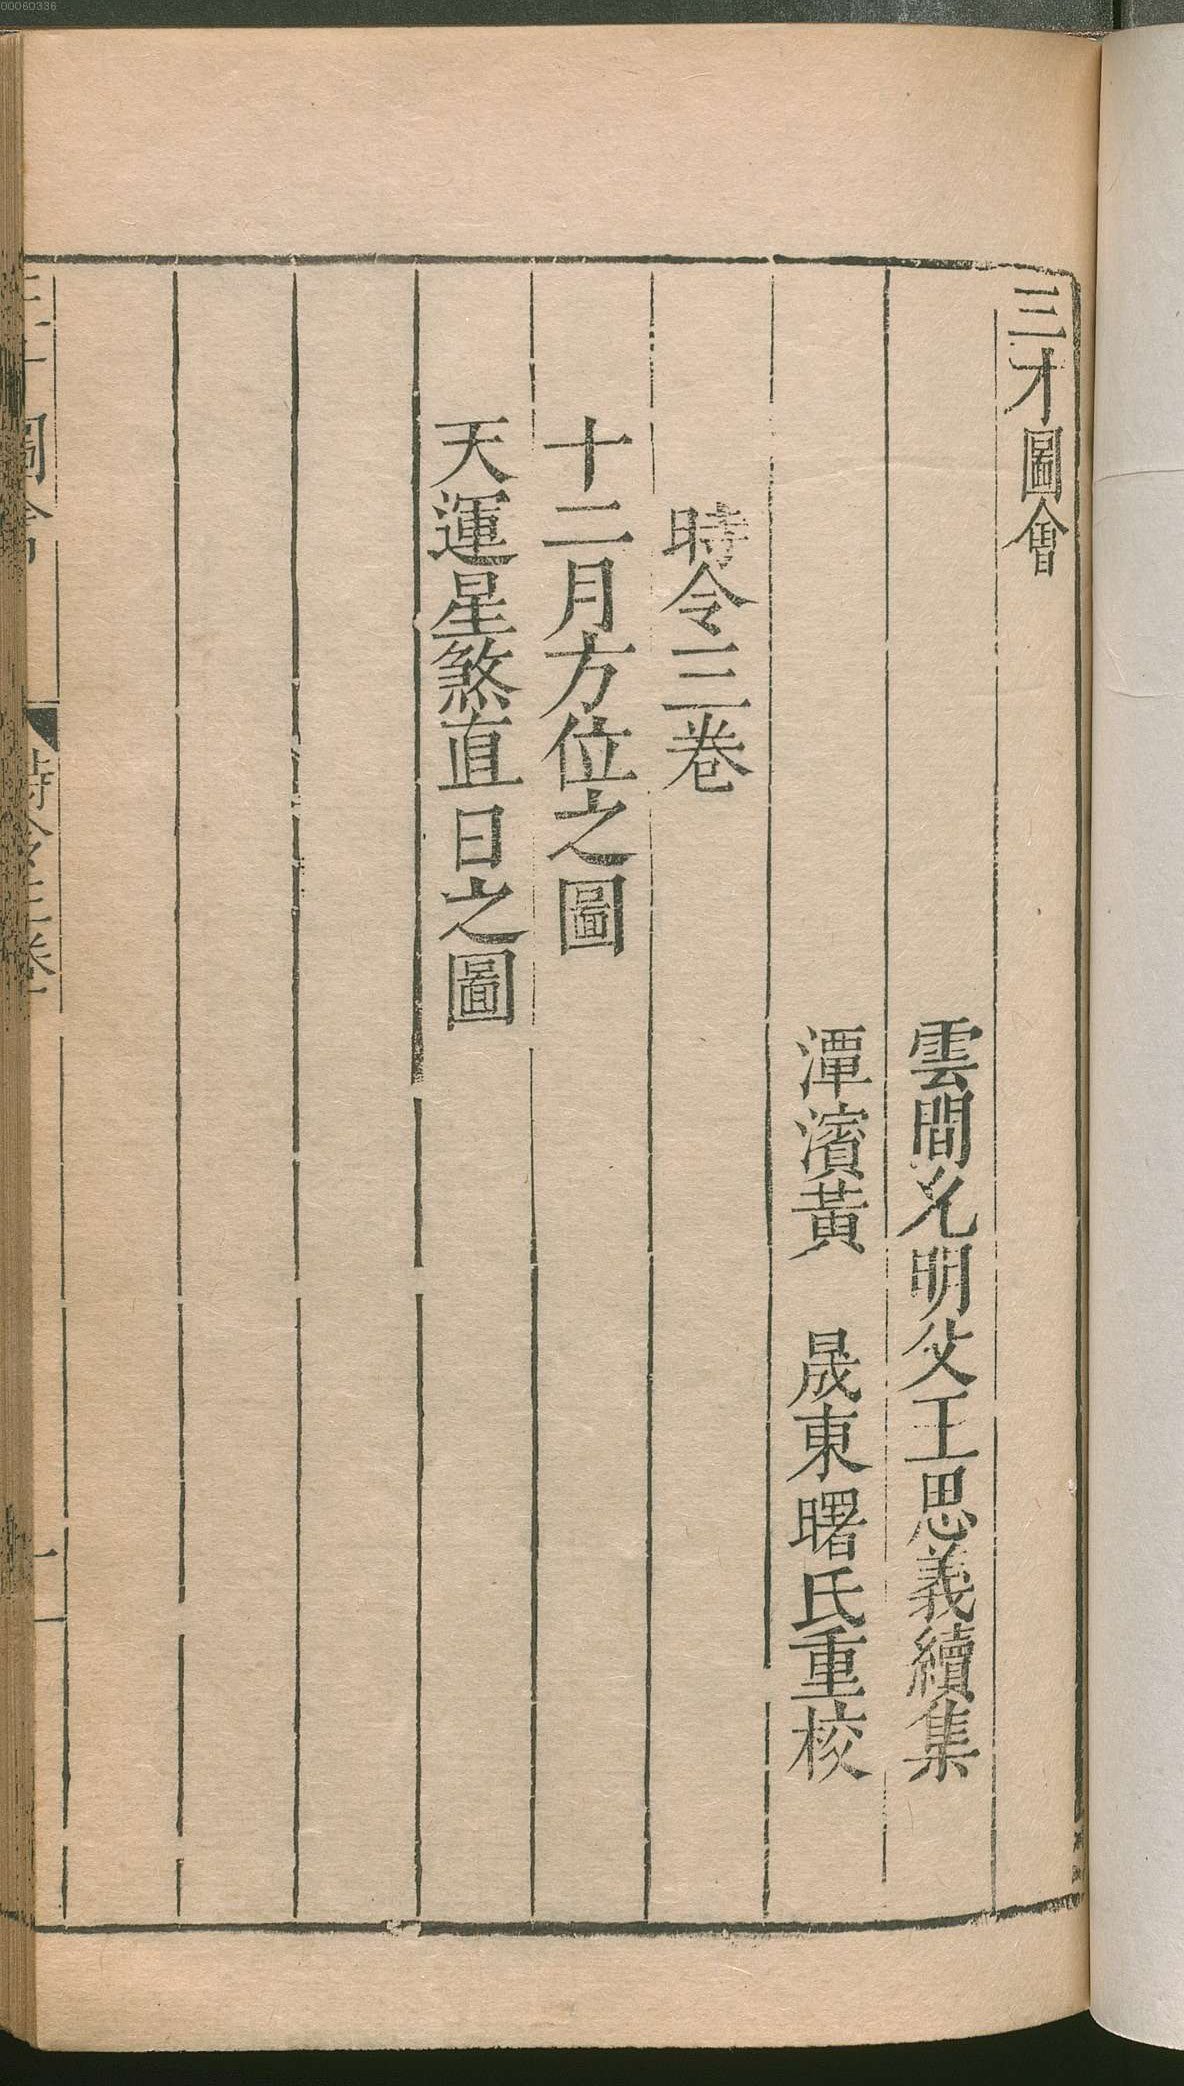 三才圖會
雲間允明父王思義續集
潭濱黃　晟東曙氏重校
時令三卷
十二月方位之圖
天運星煞直日之圖
時令三卷
一
00060336